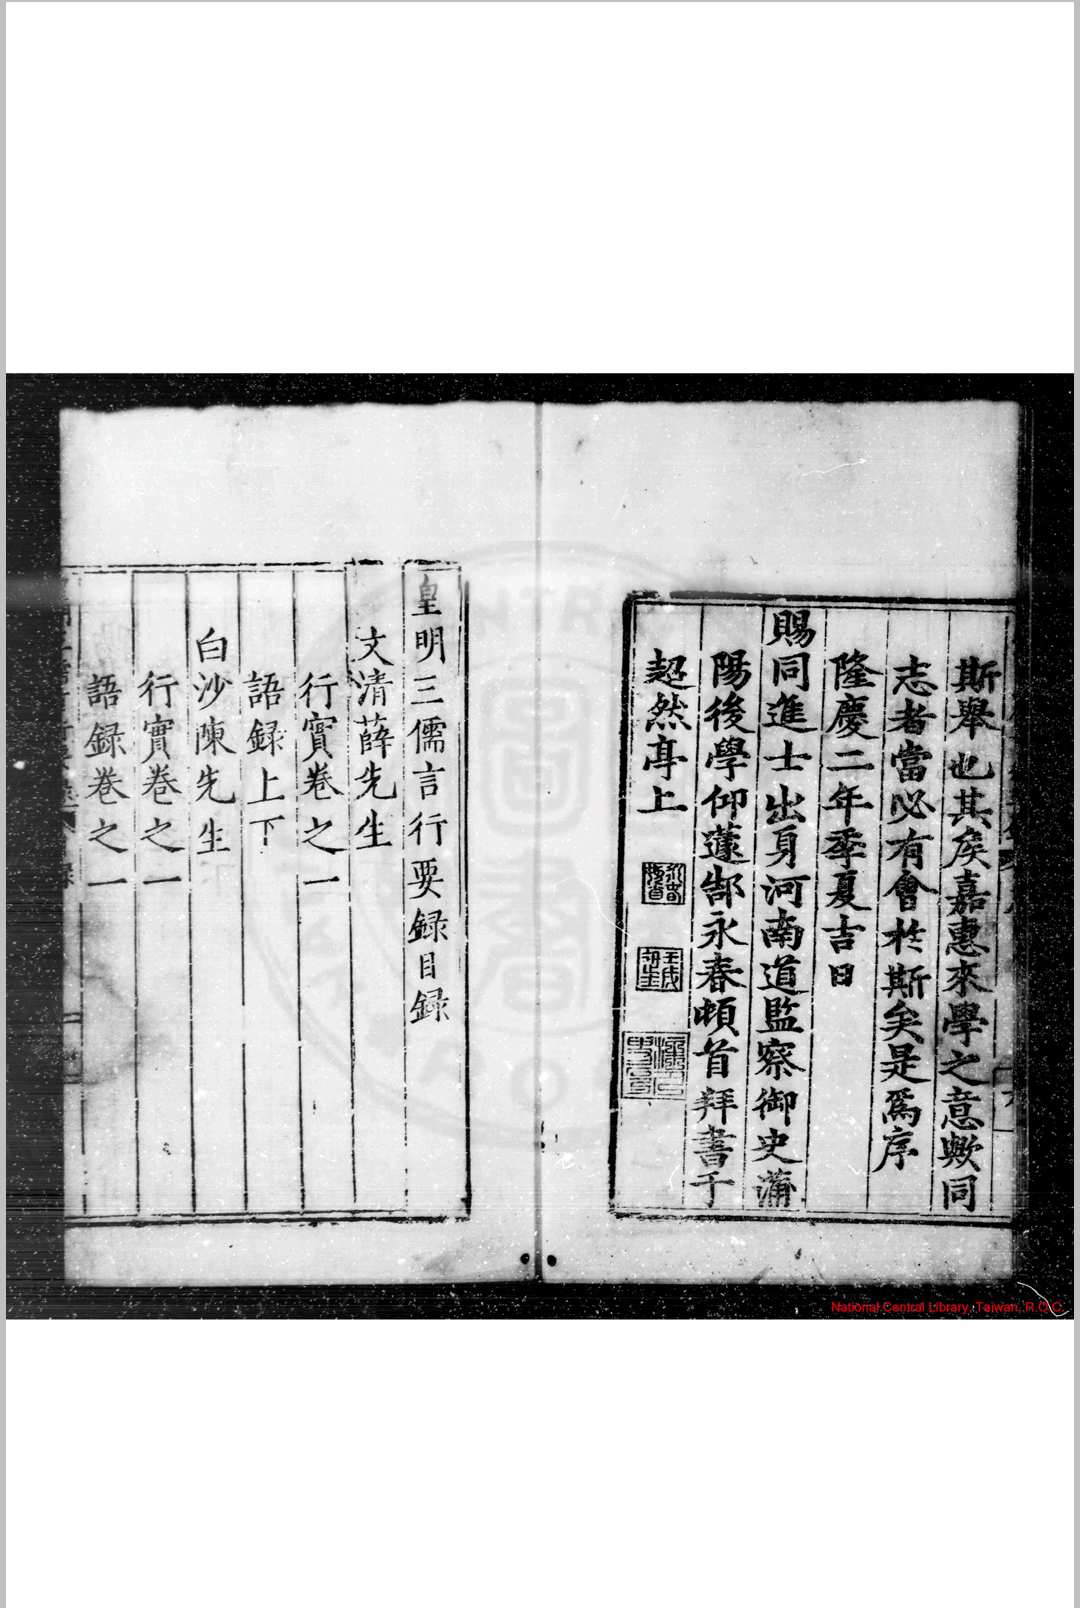 斯舉也其矦嘉惠來學之意歟同
志者當必有會於斯矣是爲序
隆慶二年季夏吉日
賜同進士出身河南道監察御史蒲
陽後學仰蘧郜永春頓首拜書于
超然亭上
皇明三儒言行要録目録
文清薛先生
行實卷之一
語録上下
白沙陳先生
行實卷之一
語録卷之一
National Central Library, Taiwan, R.O.C.